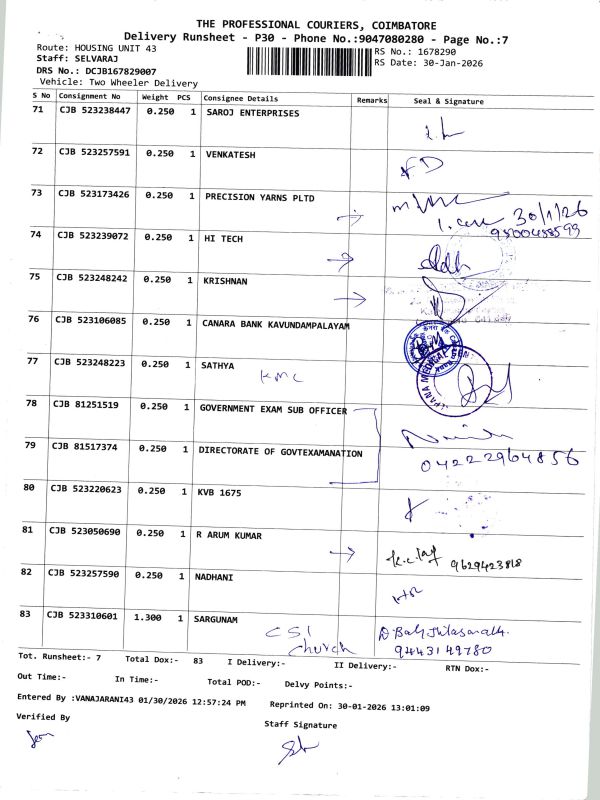 THE PROFESSIONAL COURIERS, COIMBATORE
Delivery Runsheet - P30 - Phone No.:9047080280 - Page No.:7
Route: HOUSING UNIT 43
RS No.: 1678290
Staff: SELVARAJ
RS Date: 30-Jan-2026
DRS No.: DCJB167829007
Vehicle: Two Wheeler Delivery
S No Consignment No Weight PCS Consignee Details Remarks Seal & Signature
71 CJB 523238447 0.250 1 SAROJ ENTERPRISES
72 CJB 523257591 0.250 1 VENKATESH
73 CJB 523173426 0.250 1 PRECISION YARNS PLTD
30/1/26
74 CJB 523239072 0.250 1 HI TECH
75 CJB 523248242 0.250 1 KRISHNAN
76 CJB 523106085 0.250 1 CANARA BANK KAVUNDAMPALAYAM
77 CJB 523248223 0.250 1 SATHYA
KMC
78 CJB 81251519 0.250 1 GOVERNMENT EXAM SUB OFFICER
79 CJB 81517374 0.250 1 DIRECTORATE OF GOVTEXAMANATION
04222964856
80 CJB 523220623 0.250 1 KVB 1675
81 CJB 523050690 0.250 1 R ARUM KUMAR
82 CJB 523257590 0.250 1 NADHANI
83 CJB 523310601 1.300 1 SARGUNAM
CSI
church
9443149780
Tot. Runsheet:- 7 Total Dox:- 83 I Delivery:- II Delivery:- RTN Dox:-
Out Time:- In Time:- Total POD:- Delvy Points:-
Entered By :VANAJARANI43 01/30/2026 12:57:24 PM Reprinted On: 30-01-2026 13:01:09
Verified By
Staff Signature